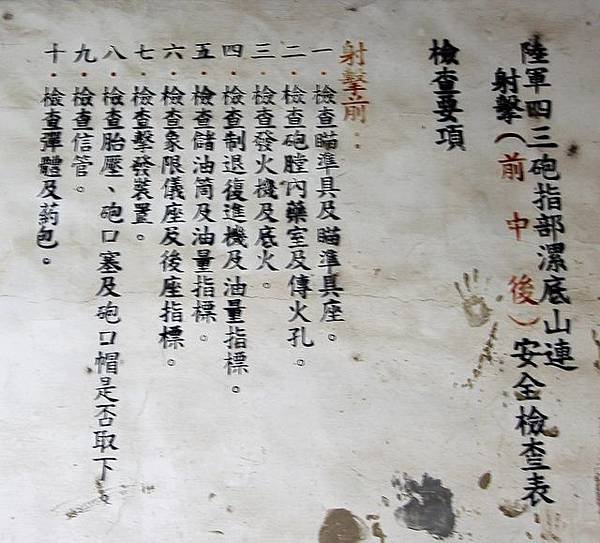 陸軍四三砲指部漯底山連
射擊（前中後）安全檢查表
檢查要項
射擊前：
一．檢查瞄準具及瞄準具座。
二．檢查砲膛內藥室及傳火孔。
三．檢查發火機及底火。
四．檢查制退復進機及油量指標。
五．檢查儲油筒及油量指標。
六．檢查象限儀座及後座指標。
七．檢查擊發裝置。
八．檢查胎壓、砲口塞及砲口帽是否取下。
九．檢查信管。
十．檢查彈體及葯包。